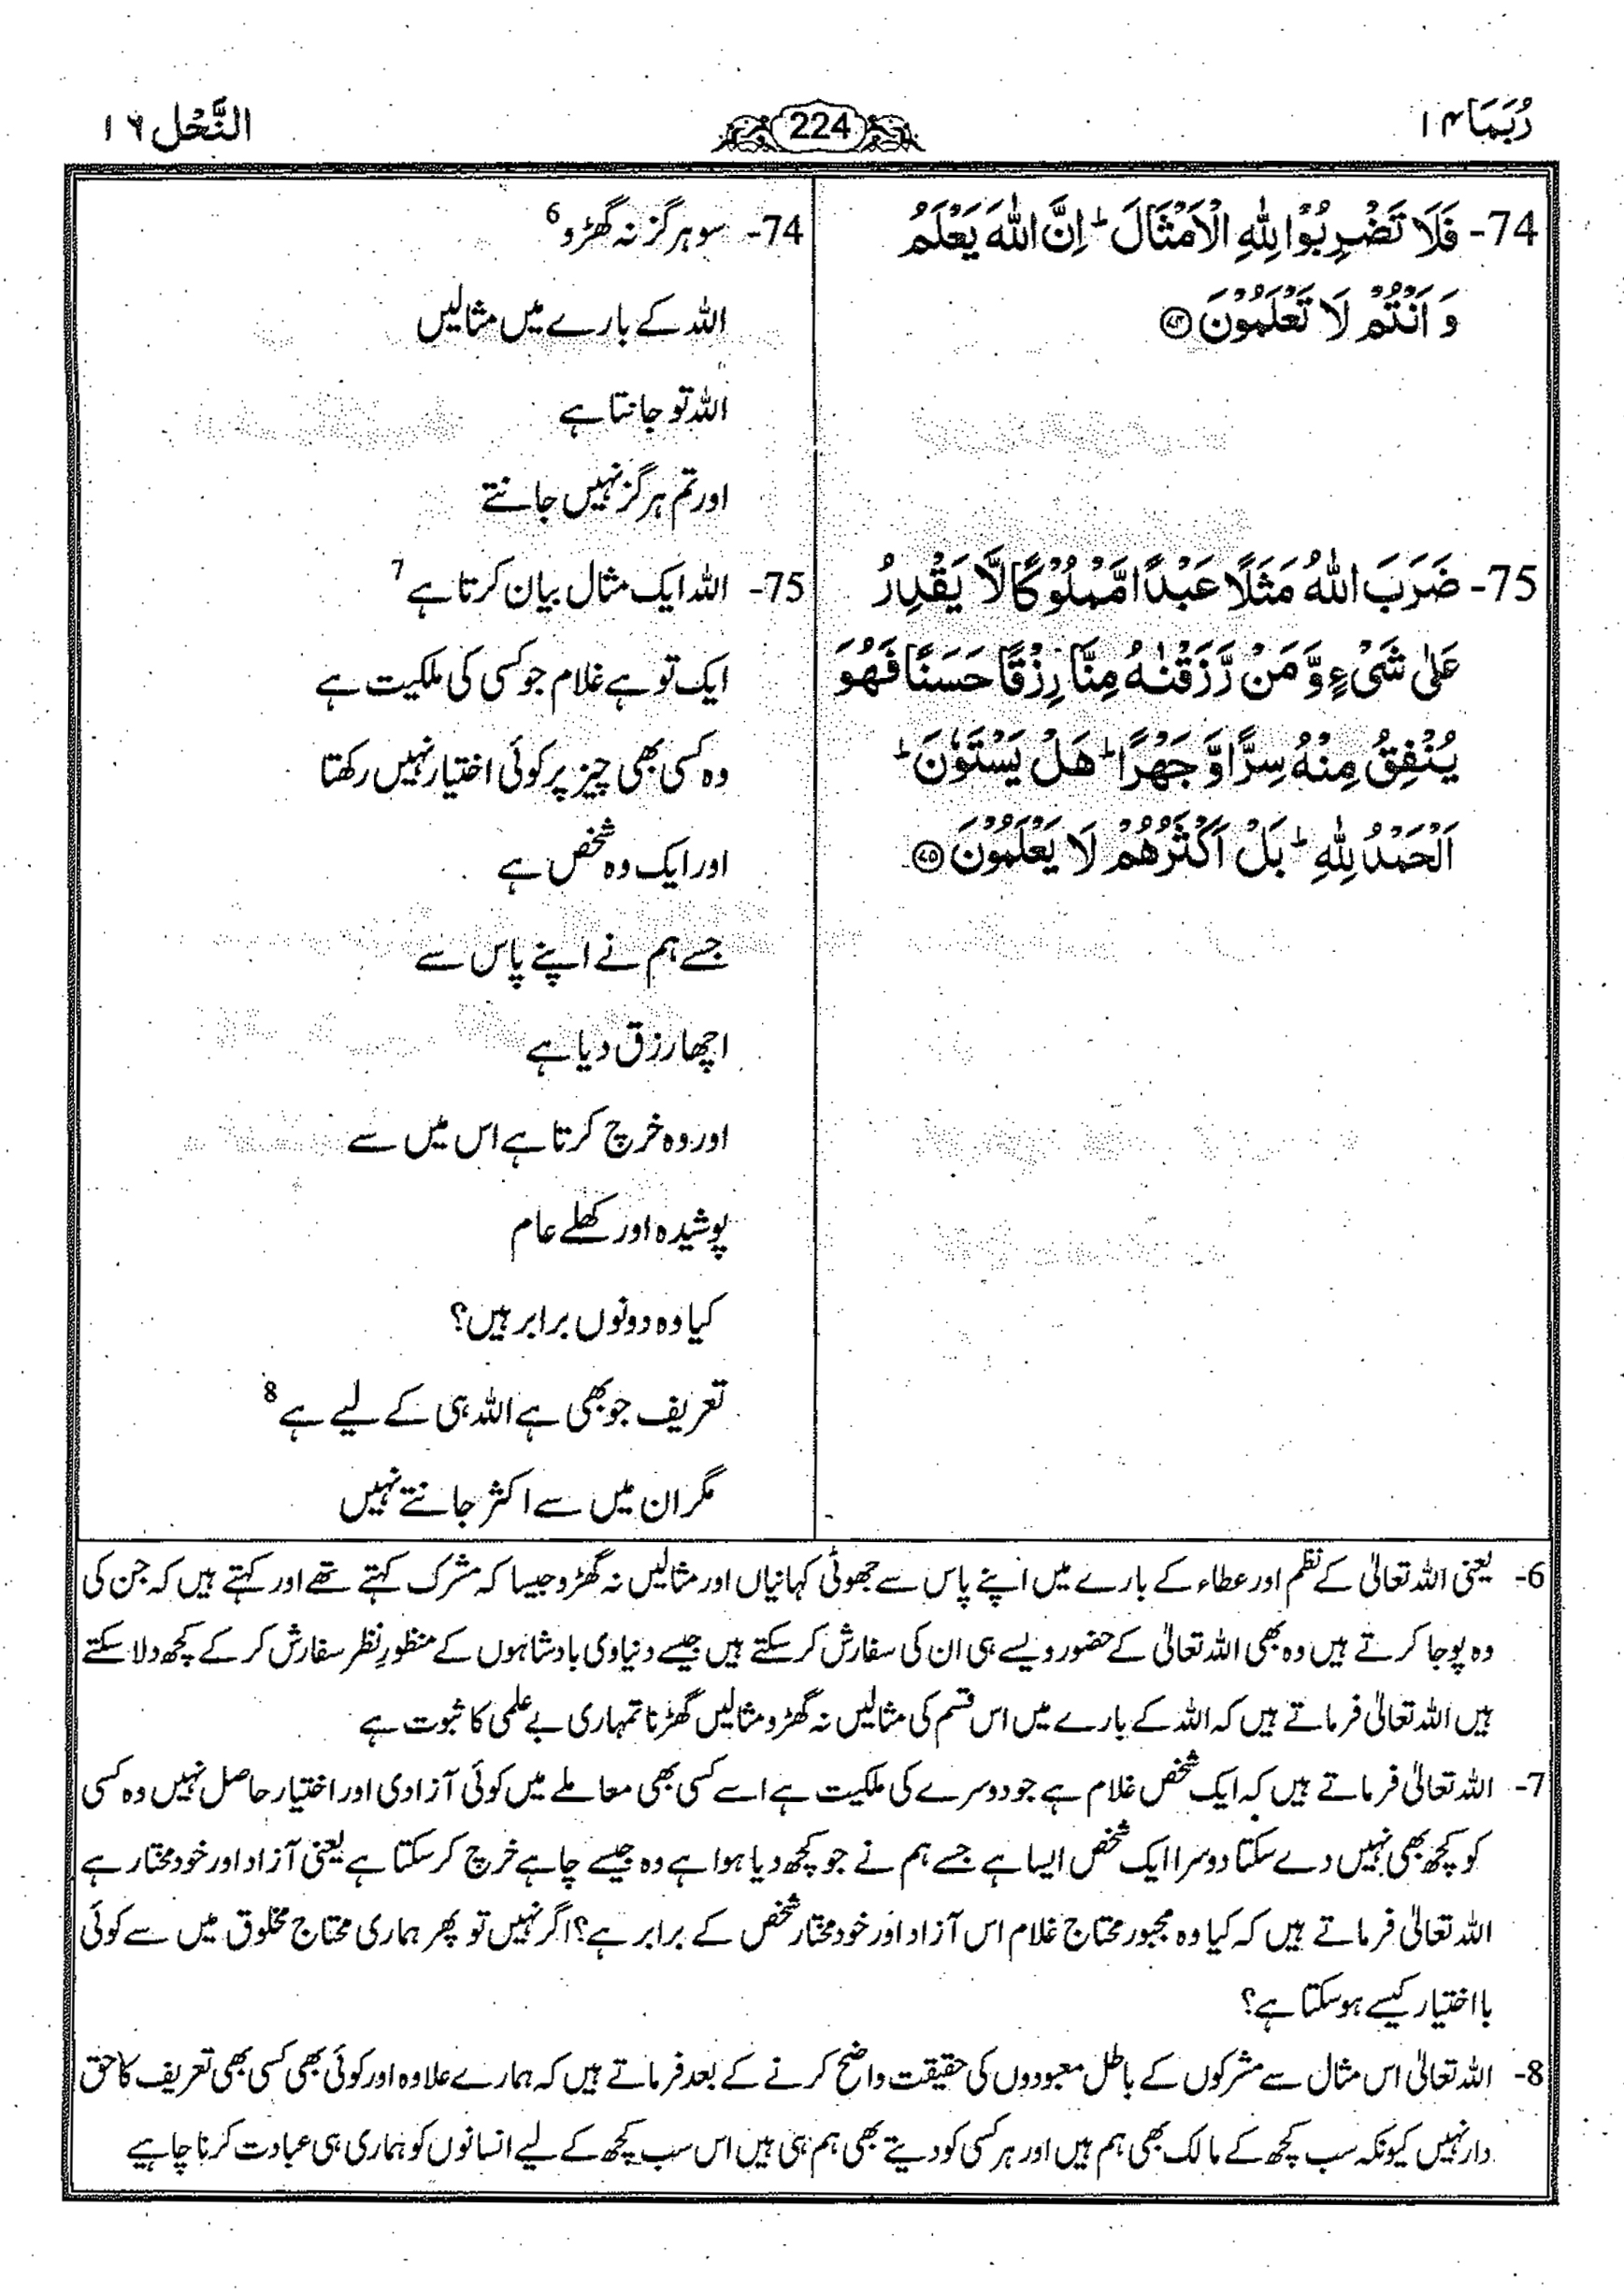 رُبَمَا ۱۴
224
النَّحْل ۱۶
74- فَلَا تَضْرِبُوْا لِلّٰهِ الْاَمْثَالَ ؕ اِنَّ اللّٰهَ يَعْلَمُ
وَ اَنْتُمْ لَا تَعْلَمُوْنَ ﴿۷۴﴾
75- ضَرَبَ اللّٰهُ مَثَلًا عَبْدًا مَّمْلُوْكًا لَّا يَقْدِرُ
عَلٰى شَيْءٍ وَّ مَنْ رَّزَقْنٰهُ مِنَّا رِزْقًا حَسَنًا فَهُوَ
يُنْفِقُ مِنْهُ سِرًّا وَّ جَهْرًا ؕ هَلْ يَسْتَوٗنَ ؕ
اَلْحَمْدُ لِلّٰهِ ؕ بَلْ اَكْثَرُهُمْ لَا يَعْلَمُوْنَ ﴿۷۵﴾
74- سو ہرگز نہ گھڑو 6
اللہ کے بارے میں مثالیں
اللہ تو جانتا ہے
اور تم ہرگز نہیں جانتے
75- اللہ ایک مثال بیان کرتا ہے 7
ایک تو ہے غلام جو کسی کی ملکیت ہے
وہ کسی بھی چیز پر کوئی اختیار نہیں رکھتا
اور ایک وہ شخص ہے
جسے ہم نے اپنے پاس سے
اچھا رزق دیا ہے
اور وہ خرچ کرتا ہے اس میں سے
پوشیدہ اور کھلے عام
کیا وہ دونوں برابر ہیں؟
تعریف جو بھی ہے اللہ ہی کے لیے ہے 8
مگر ان میں سے اکثر جانتے نہیں
6- یعنی اللہ تعالیٰ کے نظم اور عطاء کے بارے میں اپنے پاس سے جھوٹی کہانیاں اور مثالیں نہ گھڑو جیسا کہ مشرک کہتے تھے اور کہتے ہیں کہ جن کی
وہ پوجا کرتے ہیں وہ بھی اللہ تعالیٰ کے حضور ویسے ہی ان کی سفارش کر سکتے ہیں جیسے دنیاوی بادشاہوں کے منظورِ نظر سفارش کر کے کچھ دلا سکتے
ہیں اللہ تعالیٰ فرماتے ہیں کہ اللہ کے بارے میں اس قسم کی مثالیں نہ گھڑو مثالیں گھڑنا تمہاری بے علمی کا ثبوت ہے
7- اللہ تعالیٰ فرماتے ہیں کہ ایک شخص غلام ہے جو دوسرے کی ملکیت ہے اسے کسی بھی معاملے میں کوئی آزادی اور اختیار حاصل نہیں وہ کسی
کو کچھ بھی نہیں دے سکتا دوسرا ایک شخص ایسا ہے جسے ہم نے جو کچھ دیا ہوا ہے وہ جیسے چاہے خرچ کر سکتا ہے یعنی آزاد اور خود مختار ہے
اللہ تعالیٰ فرماتے ہیں کہ کیا وہ مجبور محتاج غلام اس آزاد اور خود مختار شخص کے برابر ہے؟ اگر نہیں تو پھر ہماری محتاج مخلوق میں سے کوئی
با اختیار کیسے ہو سکتا ہے؟
8- اللہ تعالیٰ اس مثال سے مشرکوں کے باطل معبودوں کی حقیقت واضح کرنے کے بعد فرماتے ہیں کہ ہمارے علاوہ اور کوئی بھی کسی بھی تعریف کا حق
دار نہیں کیونکہ سب کچھ کے مالک بھی ہم ہیں اور ہر کسی کو دیتے بھی ہم ہی ہیں اس سب کچھ کے لیے انسانوں کو ہماری ہی عبادت کرنا چاہیے